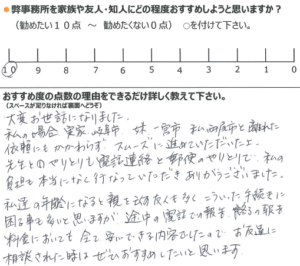 ●弊事務所を家族や友人・知人にどの程度おすすめしようと思いますか?
(勧めたい10点 ～ 勧めたくない0点) ○を付けて下さい。
10 9 8 7 6 5 4 3 2 1 0
おすすめ度の点数の理由をできるだけ詳しく教えて下さい。
(スペースが足りなければ裏面へどうぞ)
大変お世話になりました。
私の場合 実家 岐阜市 妹 一宮市 私 西尾市と離れた
依頼にもかかわらず スムーズに進めていただいた上、
先生とのやりとりも電話連絡と郵便のやりとりで、私の
負担も本当になく行なっていただきありがとうございました。
私達の年齢になると親を 友人も多く こういった手続きに
困る事も多いと思いますが 途中の電話での報告、
料金においても 全て安心できる内容でしたので お友達に
相談された時は ぜひおすすめしたいと思います。